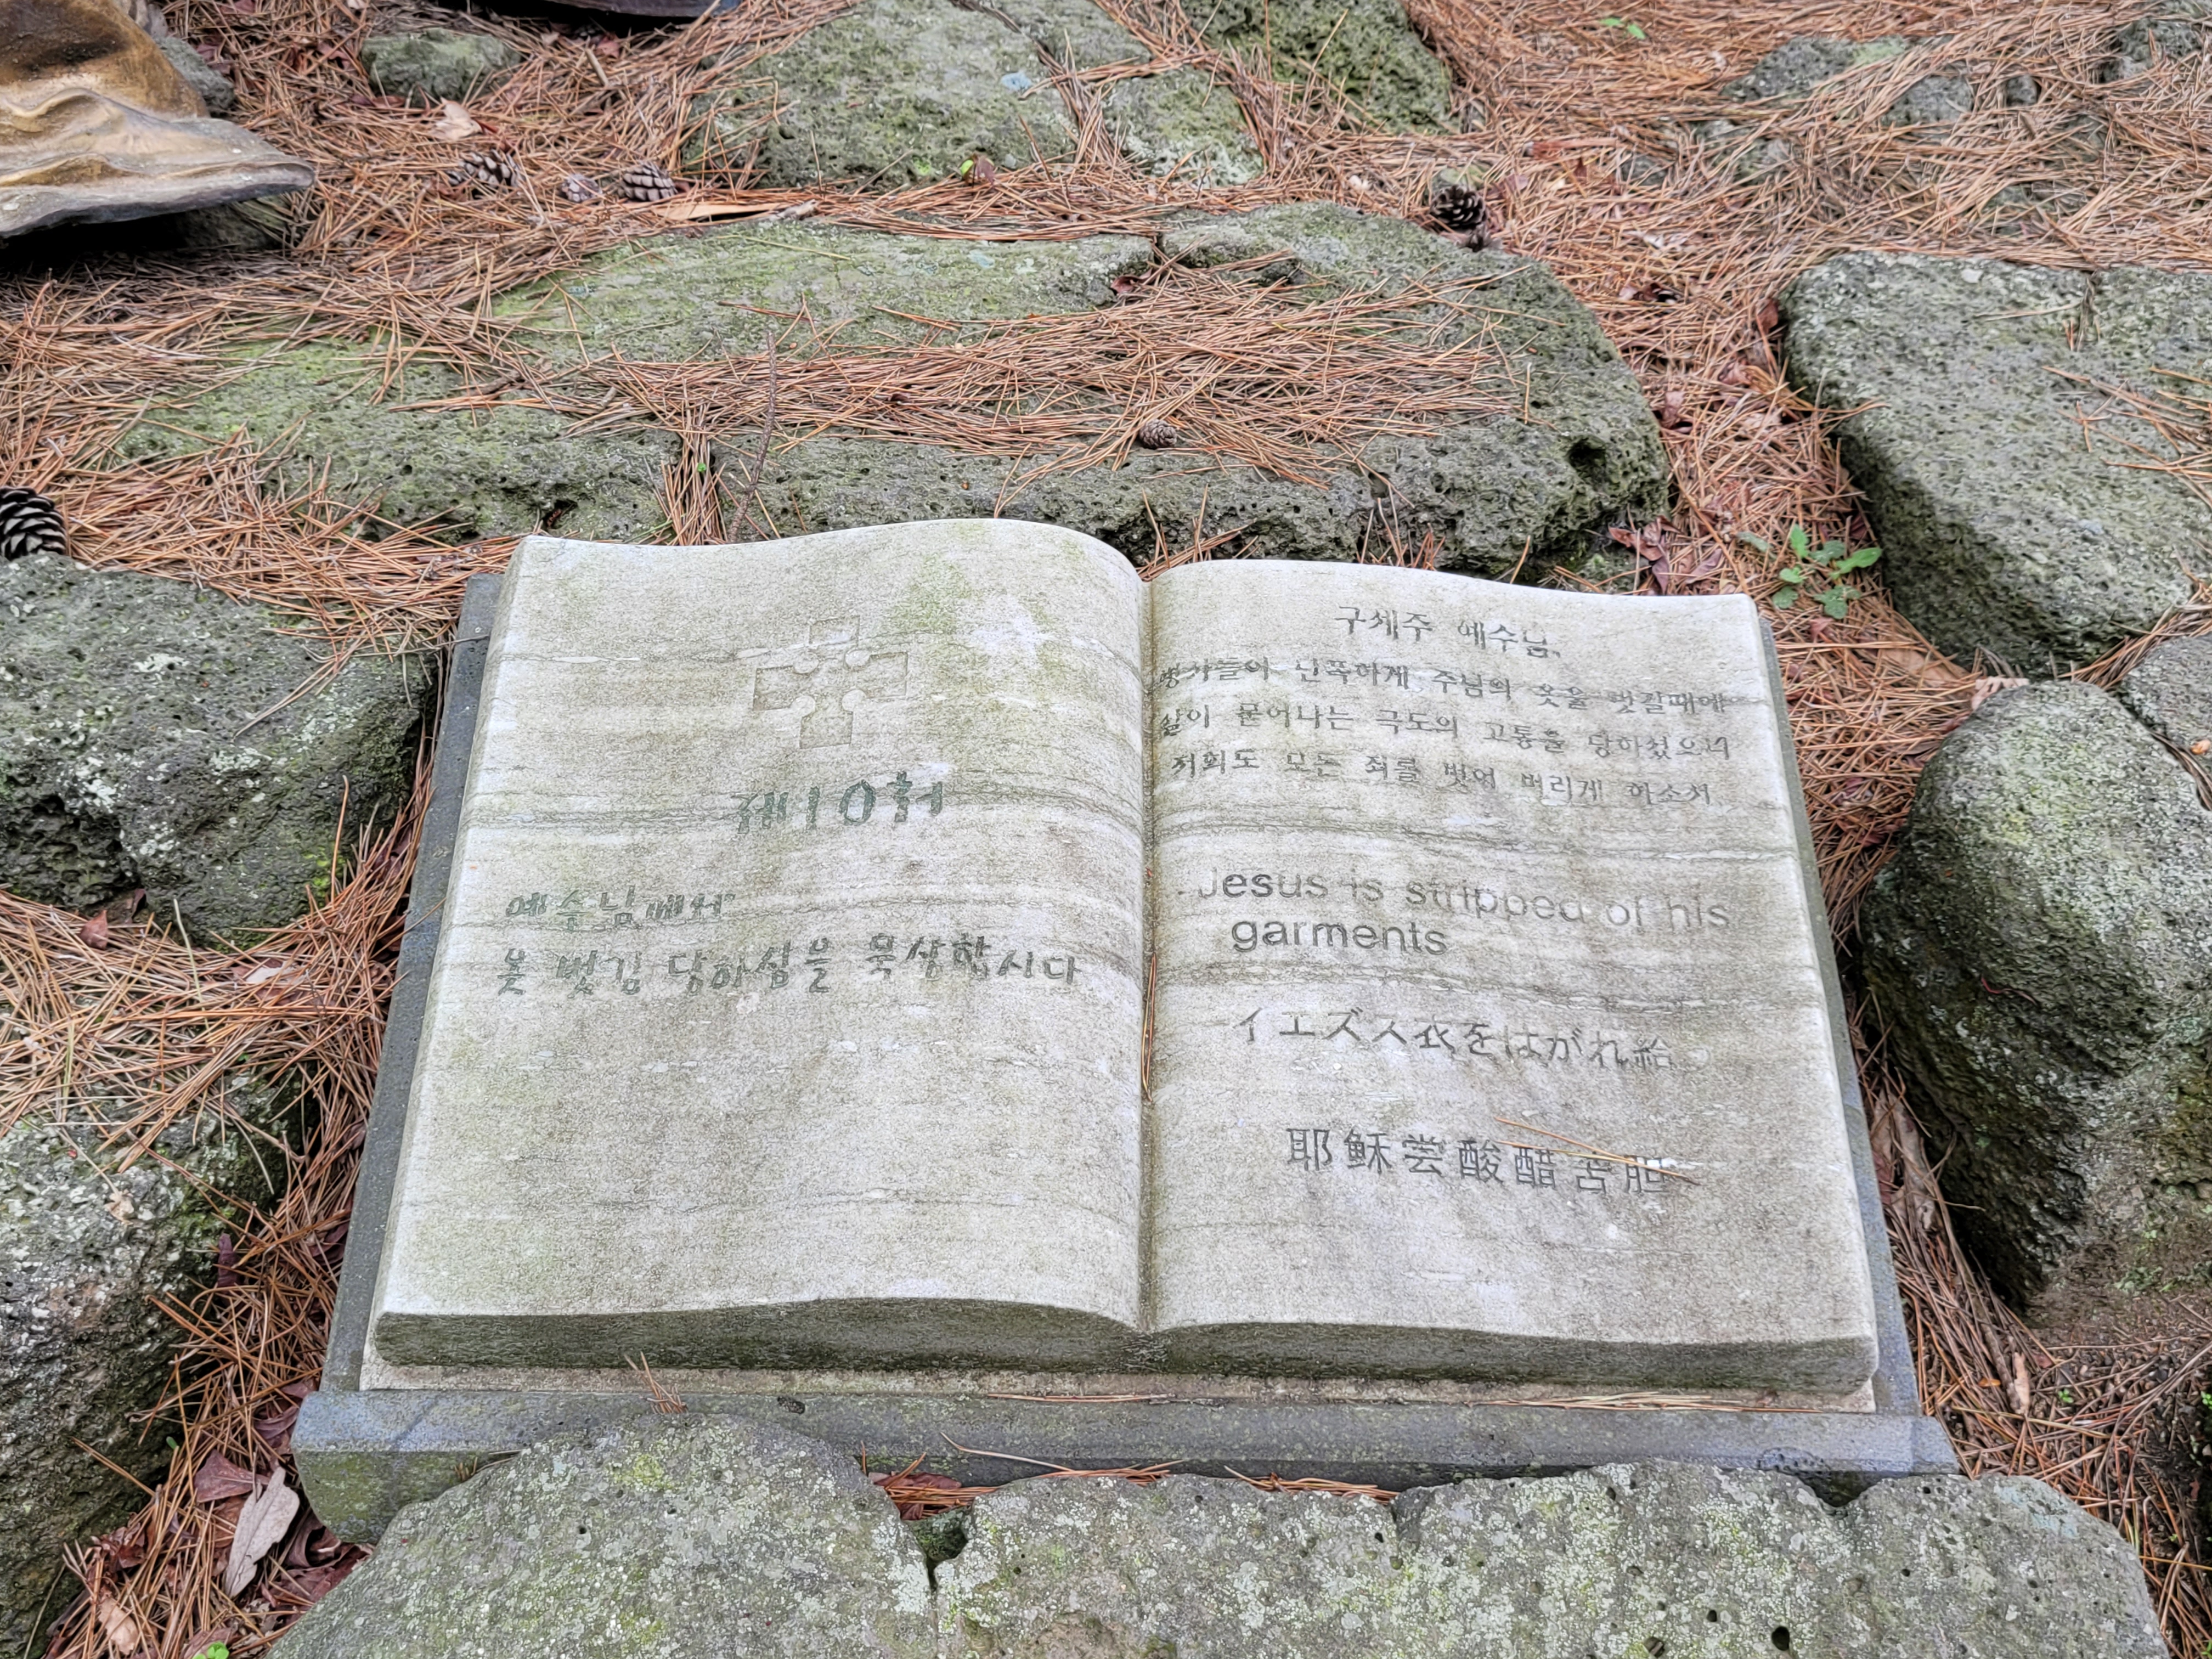 제10처
예수님께서
옷 벗김 당하심을 묵상합시다
구세주 예수님,
병사들이 난폭하게 주님의 옷을 벗길때에
살이 묻어나는 극도의 고통을 당하셨으니
저희도 모든 죄를 벗어 버리게 하소서
Jesus is stripped of his
garments
イエズス衣をはがれ給
耶稣尝酸醋苦胆